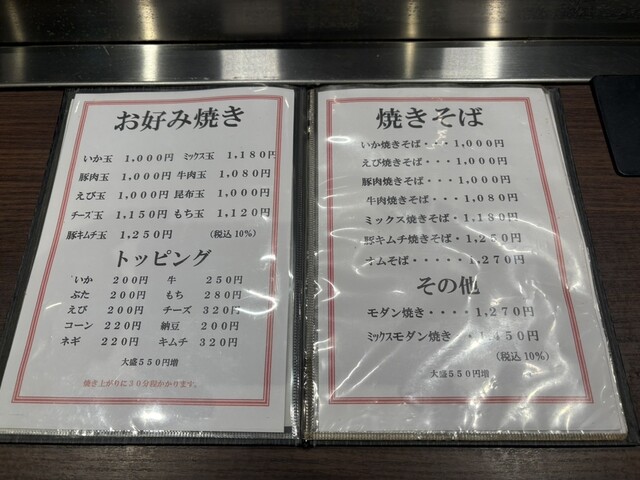 お好み焼き
いか玉 1,000円 ミックス玉 1,180円
豚肉玉 1,000円 牛肉玉 1,080円
えび玉 1,000円 昆布玉 1,000円
チーズ玉 1,150円 もち玉 1,120円
豚キムチ玉 1,250円 (税込10%)
トッピング
いか 200円 牛 250円
ぶた 200円 もち 280円
えび 200円 チーズ 320円
コーン 220円 納豆 200円
ネギ 220円 キムチ 320円
大盛550円増
焼き上がりに30分程かかります。
焼きそば
いか焼きそば・・・1,000円
えび焼きそば・・・1,000円
豚肉焼きそば・・・1,000円
牛肉焼きそば・・・1,080円
ミックス焼きそば・1,180円
豚キムチ焼きそば・1,250円
オムそば・・・・・1,270円
その他
モダン焼き・・・・1,270円
ミックスモダン焼き ・1,450円
(税込10%)
大盛550円増